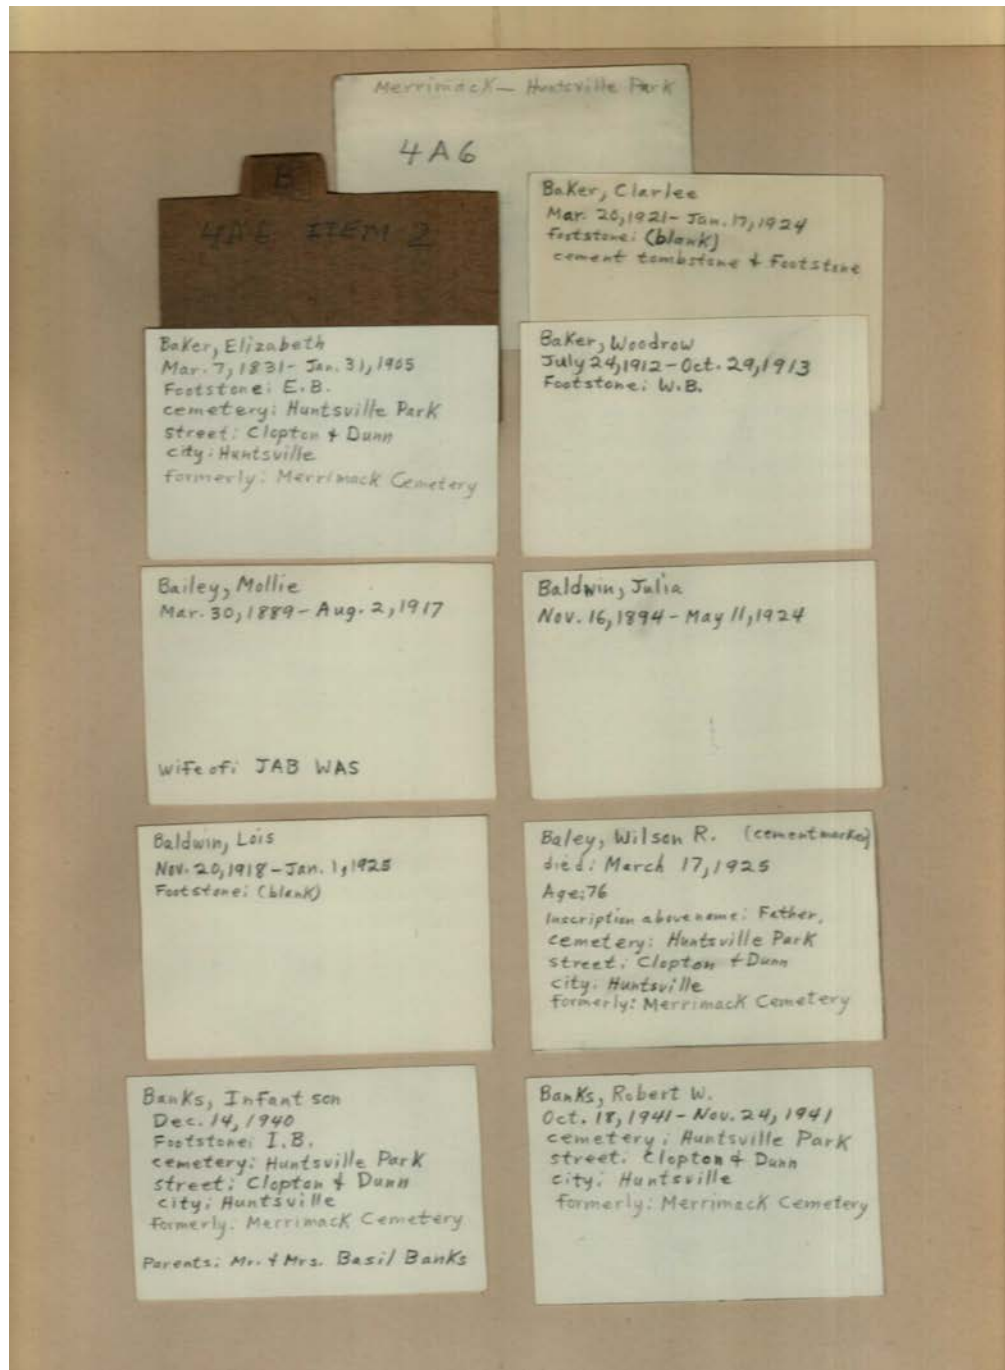 Merrimack- Huntsville Park
4A6
B
4A6 ITEM 2
Baker, Clarlee
Mar. 20, 1921- Jan. 17, 1924
Footstone: (blank)
cement tombstone & Footstone
Baker, Elizabeth
Mar. 7, 1831- Jan. 31, 1905
Footstone: E.B.
cemetery: Huntsville Park
street: Clopton & Dunn
city: Huntsville
formerly: Merrimack Cemetery
Baker, Woodrow
July 24, 1912- Oct. 29, 1913
Footstone: W.B.
Bailey, Mollie
Mar. 30, 1889- Aug. 2, 1917
Wife of: JAB WAS
Baldwin, Julia
Nov. 16, 1894- May 11, 1924
Baldwin, Lois
Nov. 20, 1918- Jan. 1, 1925
Footstone: (blank)
Baley, Wilson R. (cement marker)
died: March 17, 1925
Age: 76
Inscription above name: Father.
cemetery: Huntsville Park
street: Clopton & Dunn
city: Huntsville
formerly: Merrimack Cemetery
Banks, Infant son
Dec. 14, 1940
Footstone: I.B.
cemetery: Huntsville Park
street: Clopton & Dunn
city: Huntsville
formerly: Merrimack Cemetery
Parents: Mr. & Mrs. Basil Banks
Banks, Robert W.
Oct. 18, 1941- Nov. 24, 1941
cemetery: Huntsville Park
street: Clopton & Dunn
city: Huntsville
formerly: Merrimack Cemetery